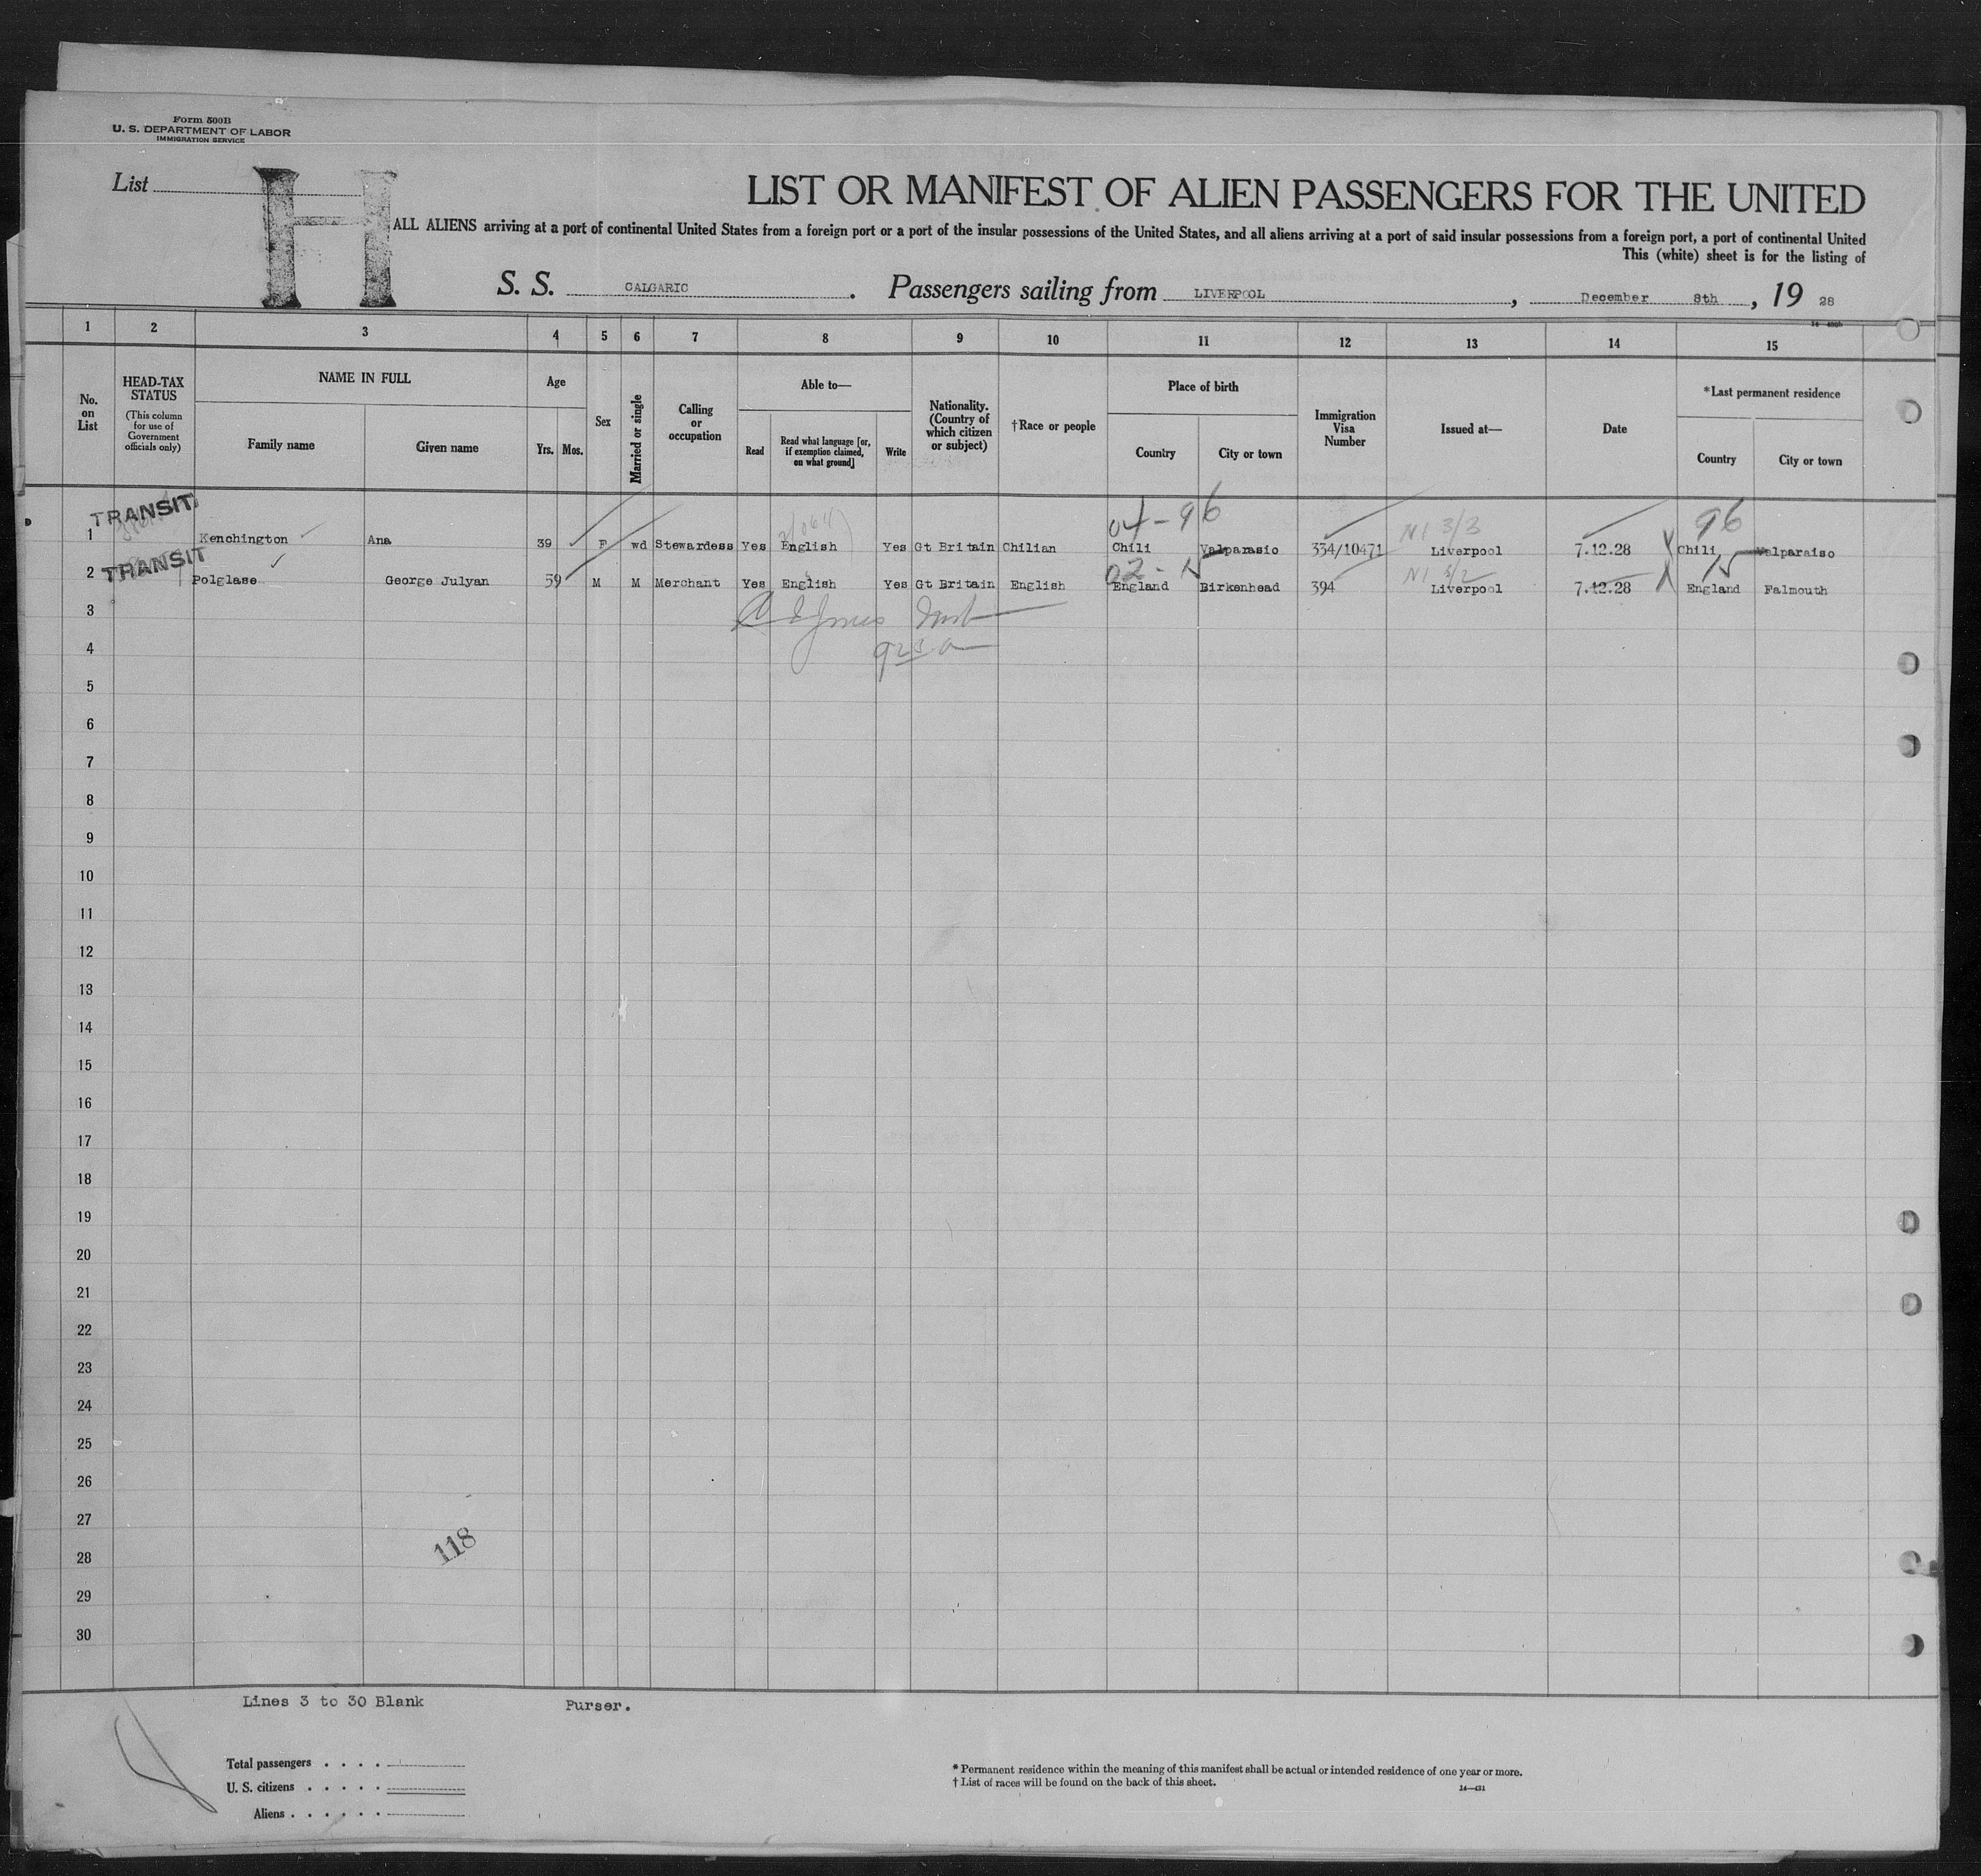 Form 500B
U. S. DEPARTMENT OF LABOR
IMMIGRATION SERVICE
List H
LIST OR MANIFEST OF ALIEN PASSENGERS FOR THE UNITED
ALL ALIENS arriving at a port of continental United States from a foreign port or a port of the insular possessions of the United States, and all aliens arriving at a port of said insular possessions from a foreign port, a port of continental United
This (white) sheet is for the listing of
S. S. CALGARIC. Passengers sailing from LIVERPOOL, December 8th, 19 28
1 2 3 4 5 6 7 8 9 10 11 12 13 14 15
No. on List
HEAD-TAX STATUS (This column for use of Government officials only)
NAME IN FULL
Family name Given name
Age
Yrs. Mos.
Sex
Married or single
Calling or occupation
Able to—
Read
Read what language [or, if exemption claimed, on what ground]
Write
Nationality. (Country of which citizen or subject)
†Race or people
Place of birth
Country City or town
Immigration Visa Number
Issued at—
Date
*Last permanent residence
Country City or town
TRANSIT 04-96 NI 3/3 96
1 Kenchington Ana 39 F wd Stewardess Yes English Yes Gt Britain Chilian Chili Valparasio 334/10471 Liverpool 7.12.28 Chili Valparaiso
TRANSIT 02-15 NI 3/2 15
2 Polglase George Julyan 59 M M Merchant Yes English Yes Gt Britain English England Birkenhead 394 Liverpool 7.12.28 England Falmouth
3
4
5
6
7
8
9
10
11
12
13
14
15
16
17
18
19
20
21
22
23
24
25
26
27
118
28
29
30
Lines 3 to 30 Blank Purser.
Total passengers . . . .
U. S. citizens . . . . .
Aliens . . . . . .
* Permanent residence within the meaning of this manifest shall be actual or intended residence of one year or more.
† List of races will be found on the back of this sheet.